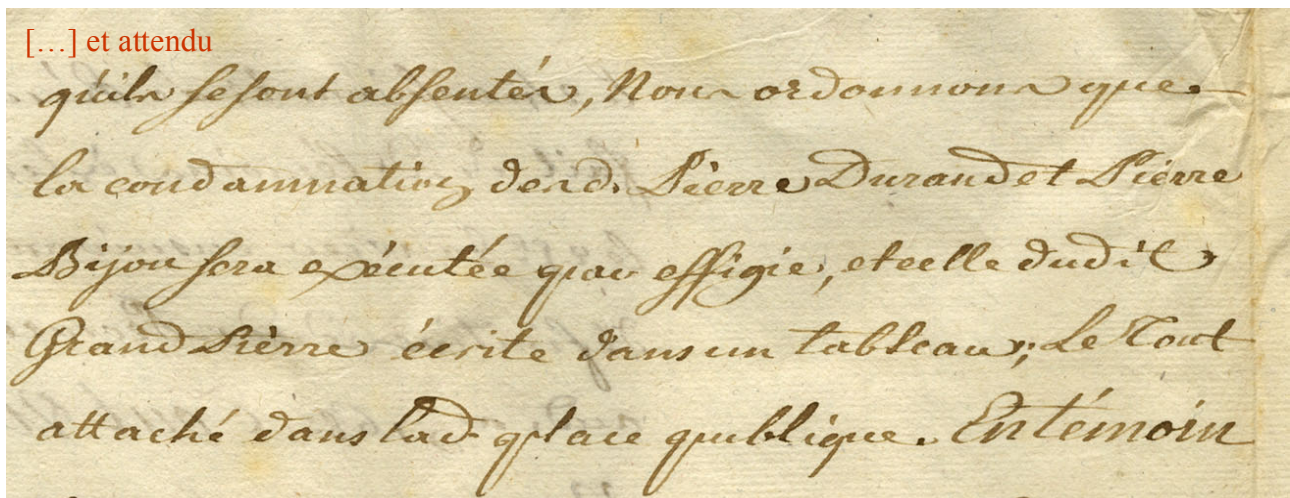 […] et attendu
qu'ils se sont absentés, Nous ordonnons que
la condamnation desd. Pierre Durand et Pierre
Bijou sera exécutée par effigie, et celle dudit
Grand Pierre écrite dans un tableau; Le Tout
attaché dans lad. place publique. En témoin